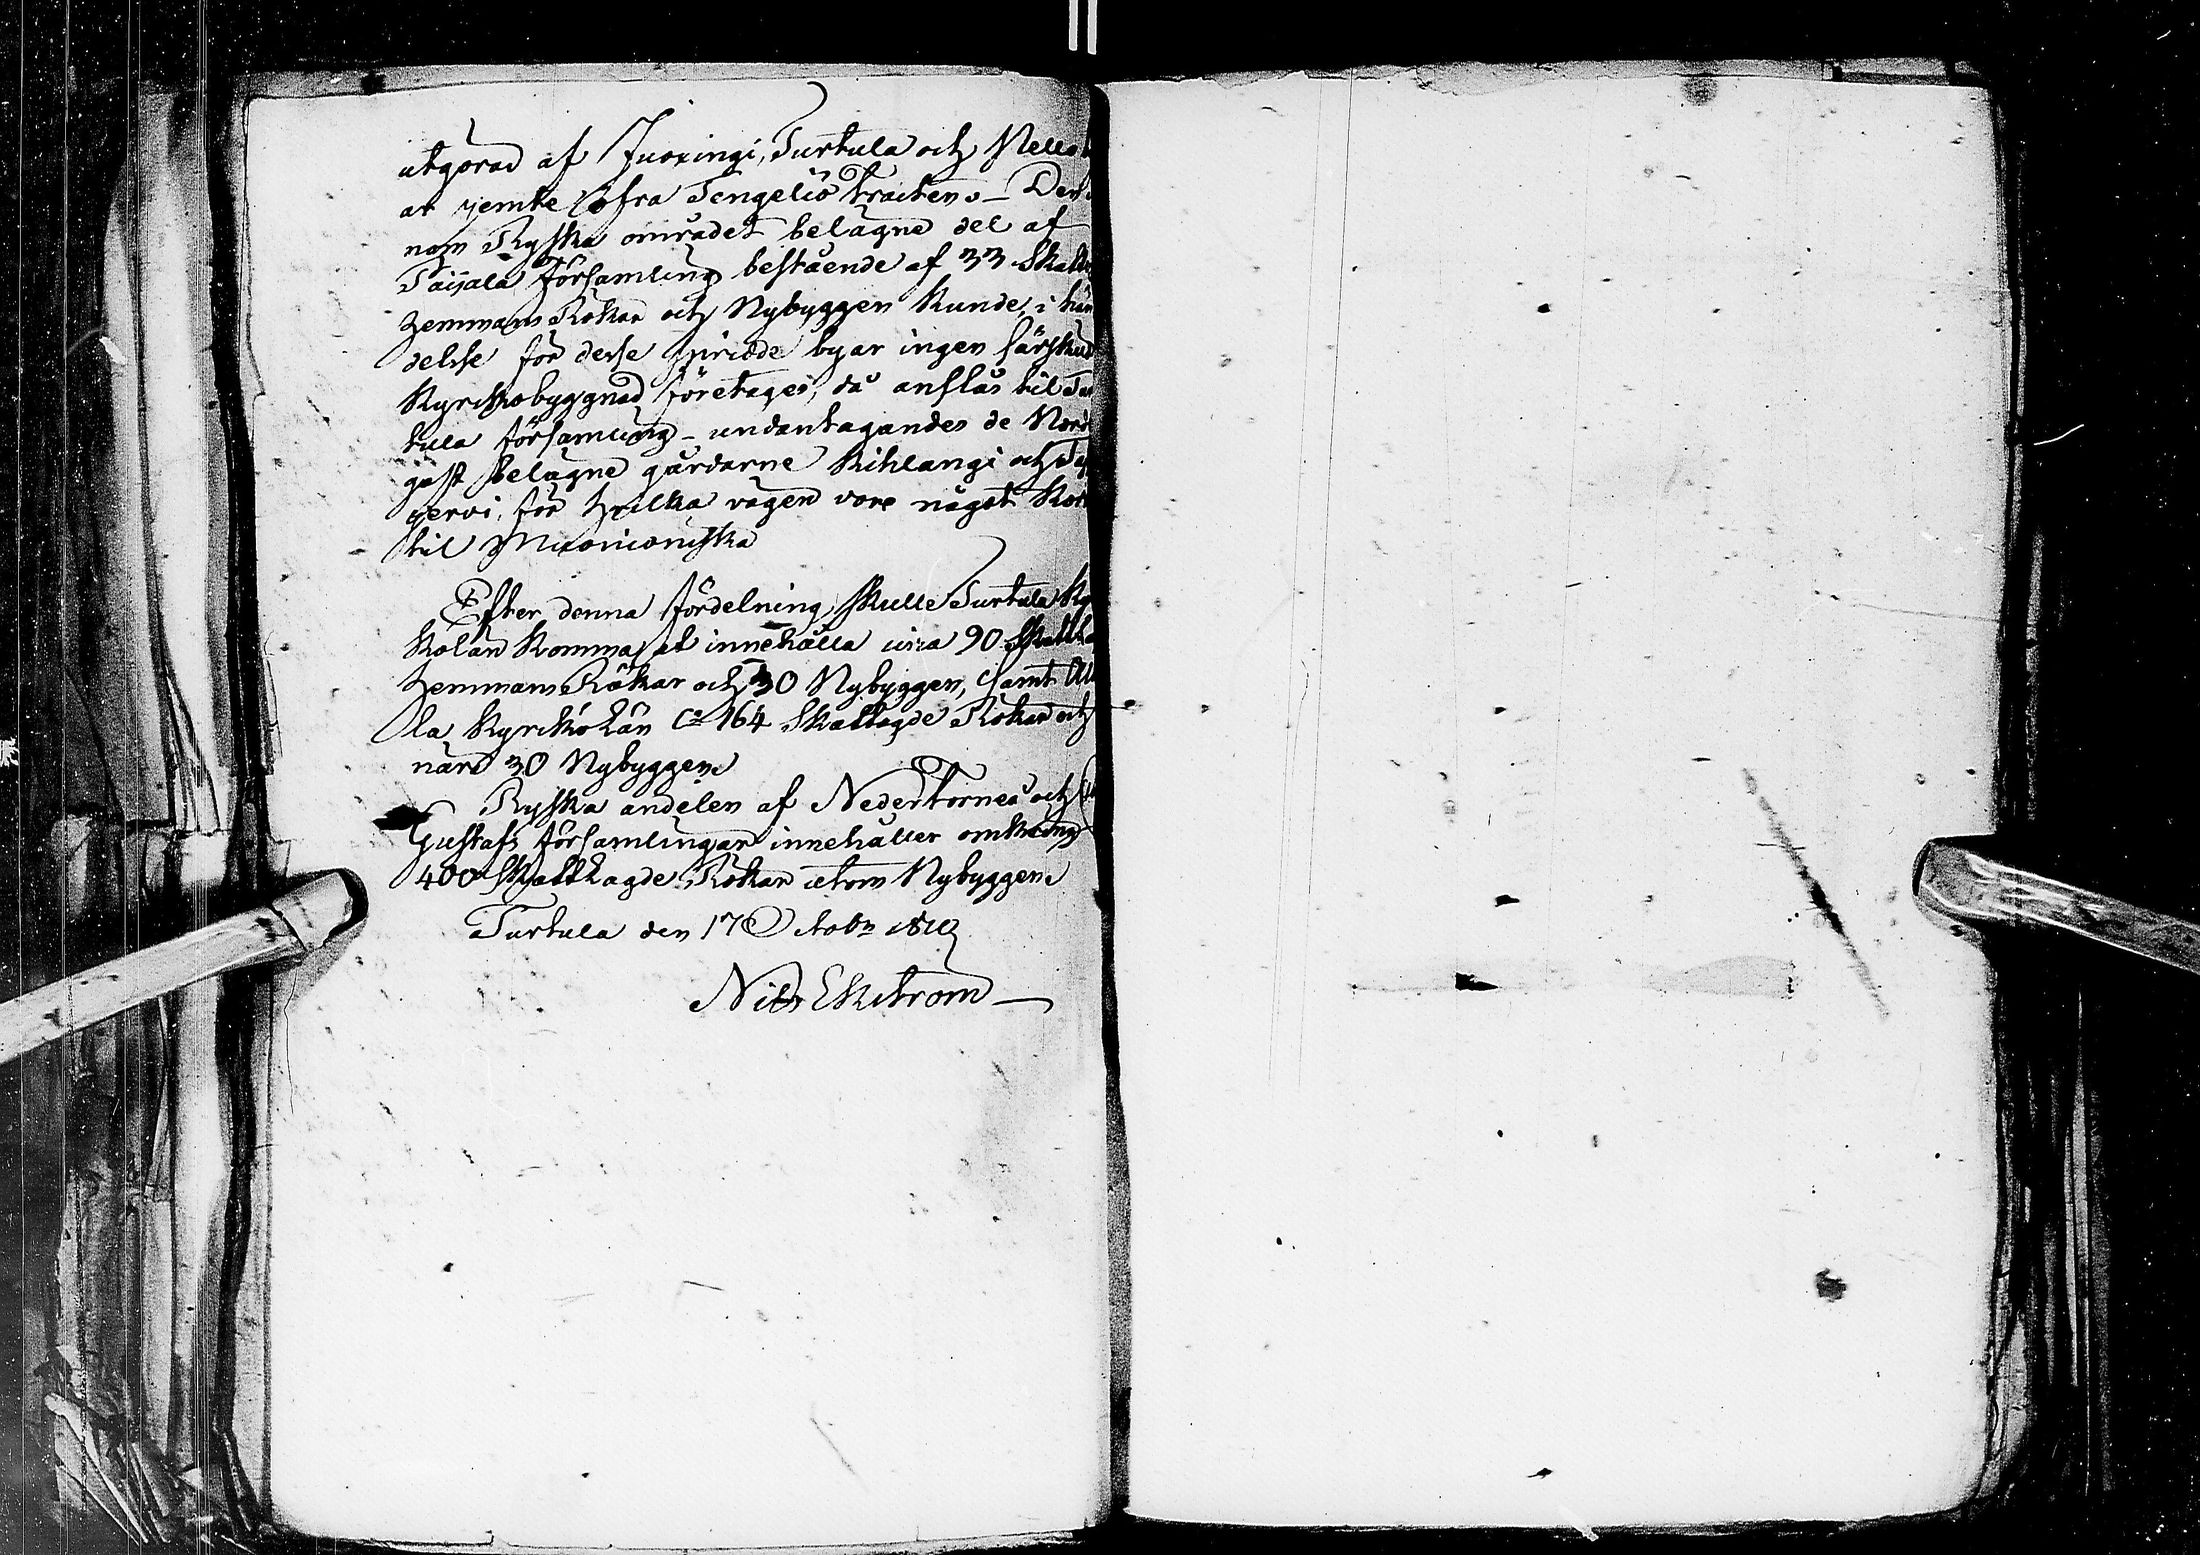 utgorad af Juoxingi, Turtula och Nello
ar jemte öfra Tengeliö tracten. – Den
nom Ryska området belägne del af
Paijala församling bestående af 33 Skatte
hemmans Rökar och Nybyggen kunde, i hän
delse för desse spridde byar ingen särskild
Kyrckobyggnad företages, då anslås til Tur
tula församling – undantagandes de Nord
gast belägne gårdarne Kihlangi och
jervi, för hvilka vägen vore något kor
til Muonioniska
Efter denna fördelning skulle Turtula Ky
kolän komma at innehålla circa 90 Skatte
hemmans Rökar och 30 Nybyggen, samt
la Kyrckolän Ca 164 Skattagde Rökar och
nära 30 Nybyggen
Ryska andelen af Nedertorneå och
Gustafs församlingar innehåller omkring
400 Skattlagde Rökar utom Nybyggen
Turtula den 17 Octobr 1810
Nils Ekström